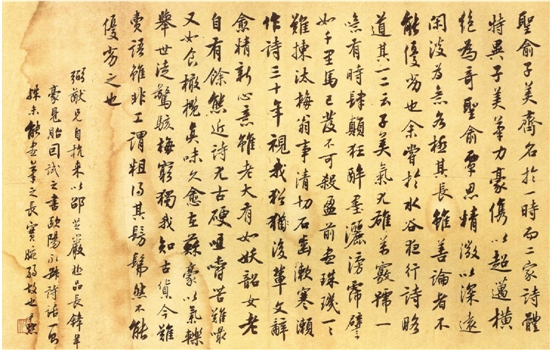 聖俞子美齊名於一時而二家詩體
特異子美筆力豪儁以超邁橫
絕為奇聖俞覃思精微以深遠
閑淡為意各極其長雖善論者不
能優劣也余嘗於水谷夜行詩略
道其一二云子美氣尤雄萬竅號一
噫有時肆顛狂醉墨灑滂霈譬
如千里馬已發不可殺盈前盡珠璣一一
難揀汰梅翁事清切石齒漱寒瀨
作詩三十年視我猶後輩文辭
愈精新心意雖老大有如妖韶女老
自有餘態近詩尤古硬咀嚼苦難嘬
又如食橄欖真味久愈在蘇豪以氣轢
舉世徒驚駭梅窮獨我知古貨今難
賣語雖非工謂粗得其髣髴然不能
優劣之也
弼猷兄自杭來以邵芝巖極品長鋒羊
豪見貽因試之書歐陽永叔詩話一節
殊未能盡筆之長實腕弱故也 尹默